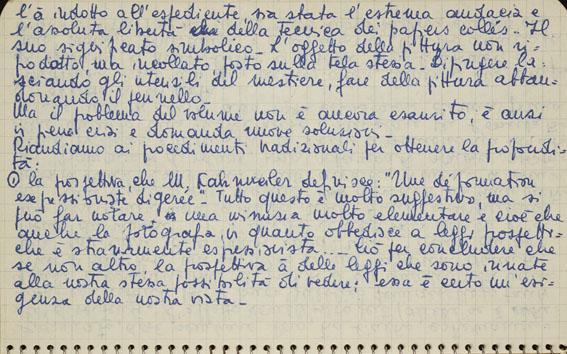 l'à indotto all'espediente, sia stata l'estrema audacia e
l'assoluta libertà della tecnica dei papiers collés. Il
suo significato simbolico. L'oggetto della pittura non ri-
prodotto, ma incollato, posto sulla tela stessa. Dipingere la-
sciando gli utensili del mestiere, fare della pittura abban-
donando il pennello.
Ma il problema del volume non è ancora esaurito, è anzi
in piena crisi e domanda nuove soluzioni.
Rimandiamo ai procedimenti tradizionali per ottenere la profondi-
tà:
① la prospettiva, che M. Kahnweiler definisce: "Une déformation
expressioniste digérée". Tutto questo è molto suggestivo, ma si
può far notare, in una misura molto elementare e cioè che
anche la fotografia, in quanto obbedisce a leggi prospetti-
che è stranamente espressionista.... Ciò per concludere che
se non altro, la prospettiva à delle leggi che sono innate
alla nostra stessa possibilità di vedere; essa è certo un'esi-
genza della nostra vista.